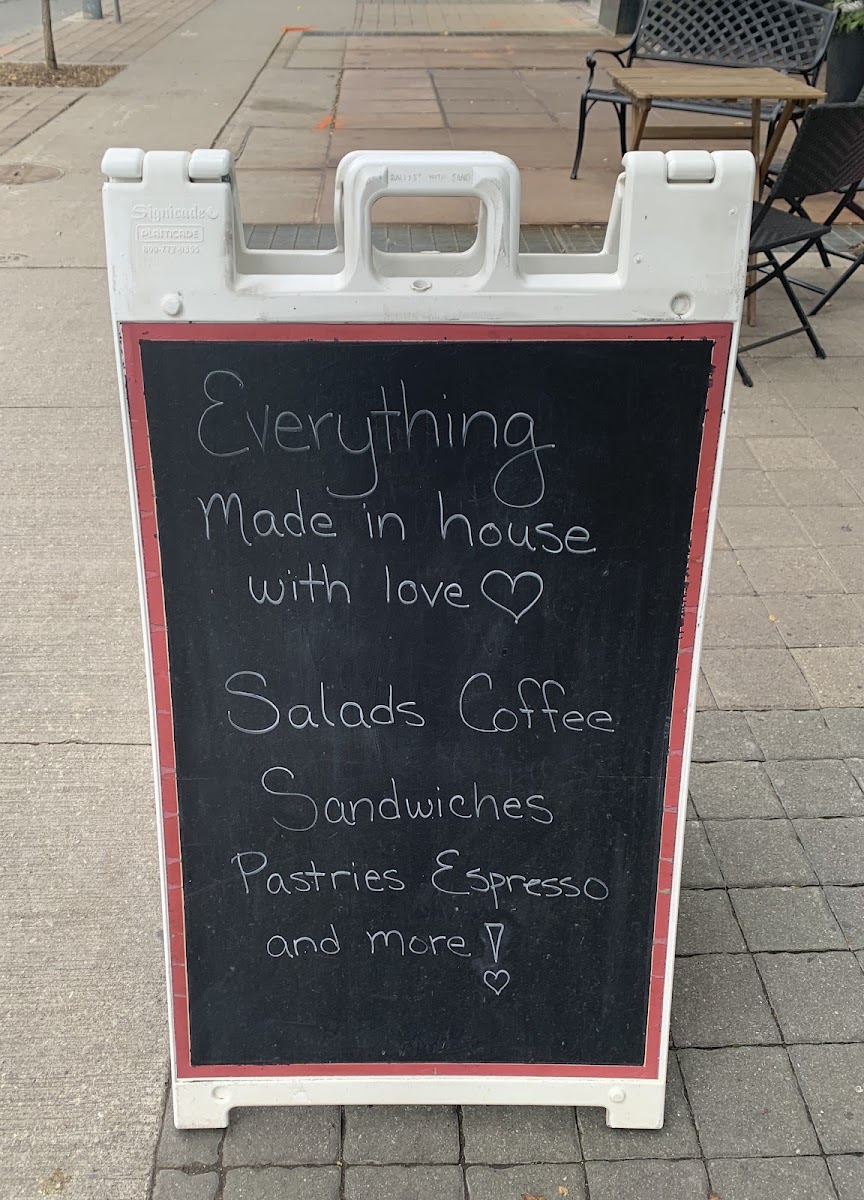 Signicade
PLASTICADE
800-772-0355
Everything
made in house
with love ♡
Salads Coffee
Sandwiches
Pastries Espresso
and more!
♡